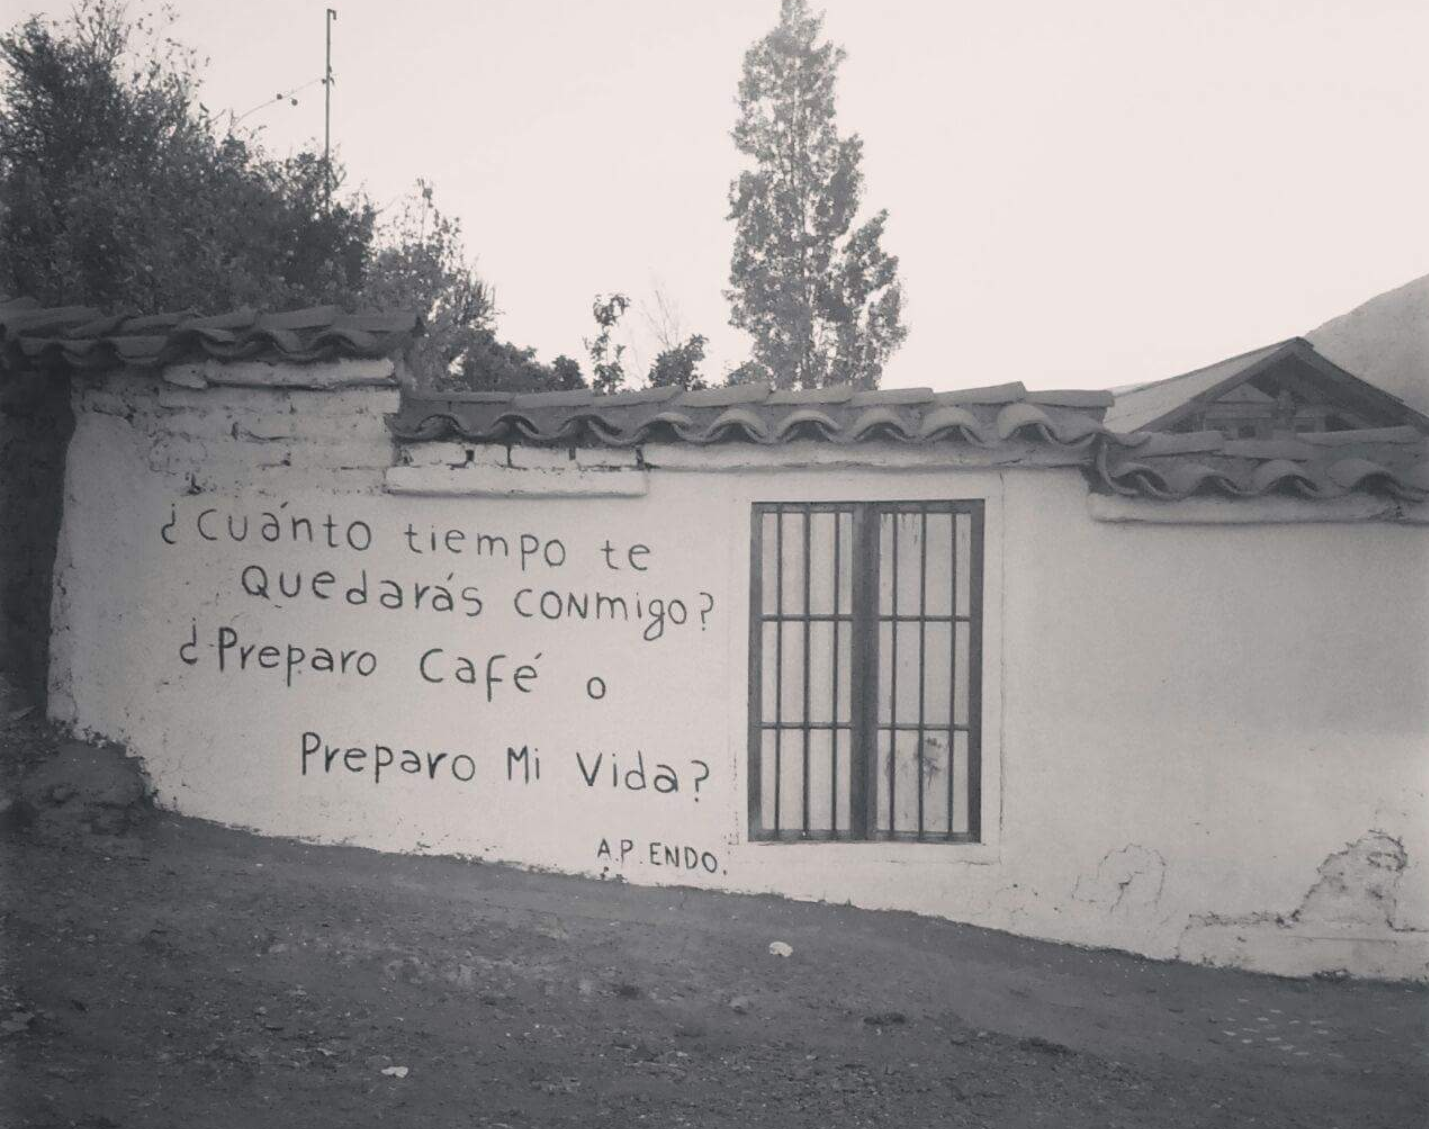 ¿Cuánto tiempo te
Quedarás CONmigo?
¿Preparo Café o
Preparo Mi Vida?
A.P. ENDO.